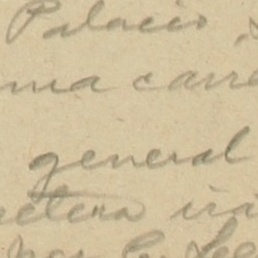 Palacio,
ma carre
general
retera irá